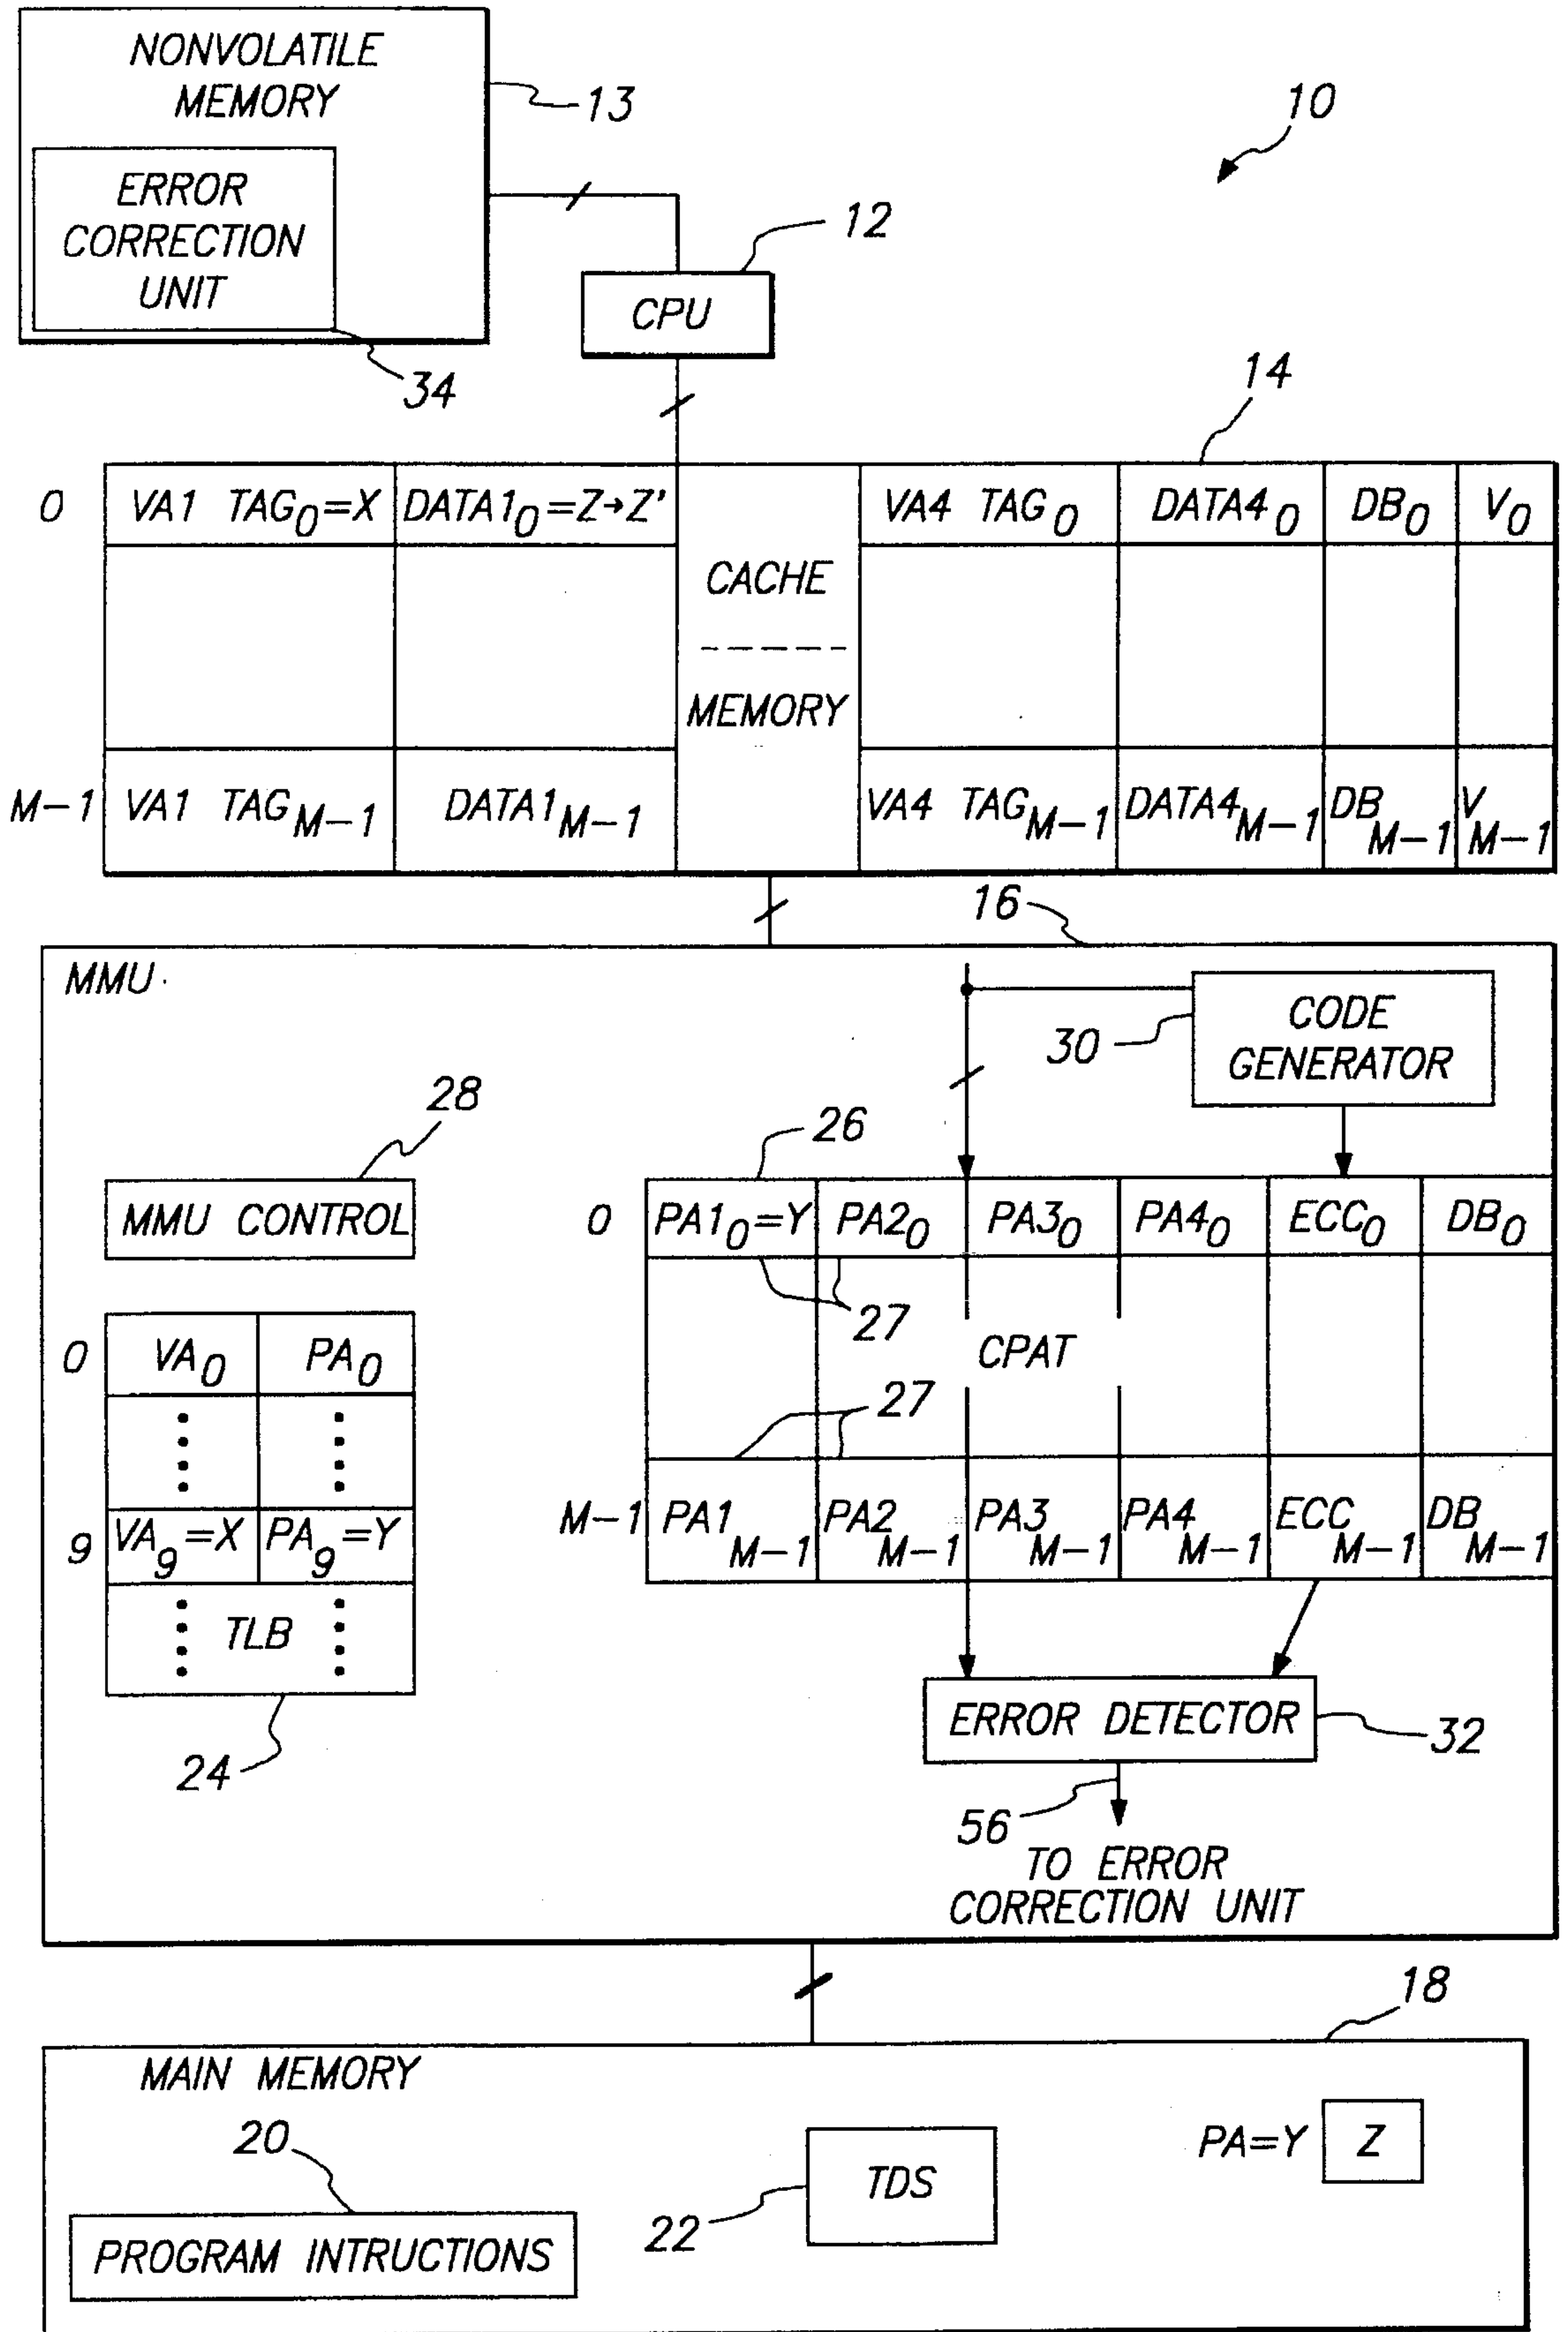 NONVOLATILE
MEMORY
13
10
ERROR
CORRECTION
UNIT
12
CPU
34
14
0 VA1 TAG0=X DATA10=Z→Z' VA4 TAG0 DATA40 DB0 V0
CACHE
MEMORY
M-1 VA1 TAGM-1 DATA1M-1 VA4 TAGM-1 DATA4M-1 DBM-1 VM-1
16
MMU
CODE
GENERATOR
30
28
26
MMU CONTROL
0 PA10=Y PA20 PA30 PA40 ECC0 DB0
27
CPAT
27
0 VA0 PA0
M-1 PA1M-1 PA2M-1 PA3M-1 PA4M-1 ECCM-1 DBM-1
9 VA9=X PA9=Y
TLB
24
ERROR DETECTOR
32
56
TO ERROR
CORRECTION UNIT
18
MAIN MEMORY
20
TDS
PA=Y Z
22
PROGRAM INTRUCTIONS